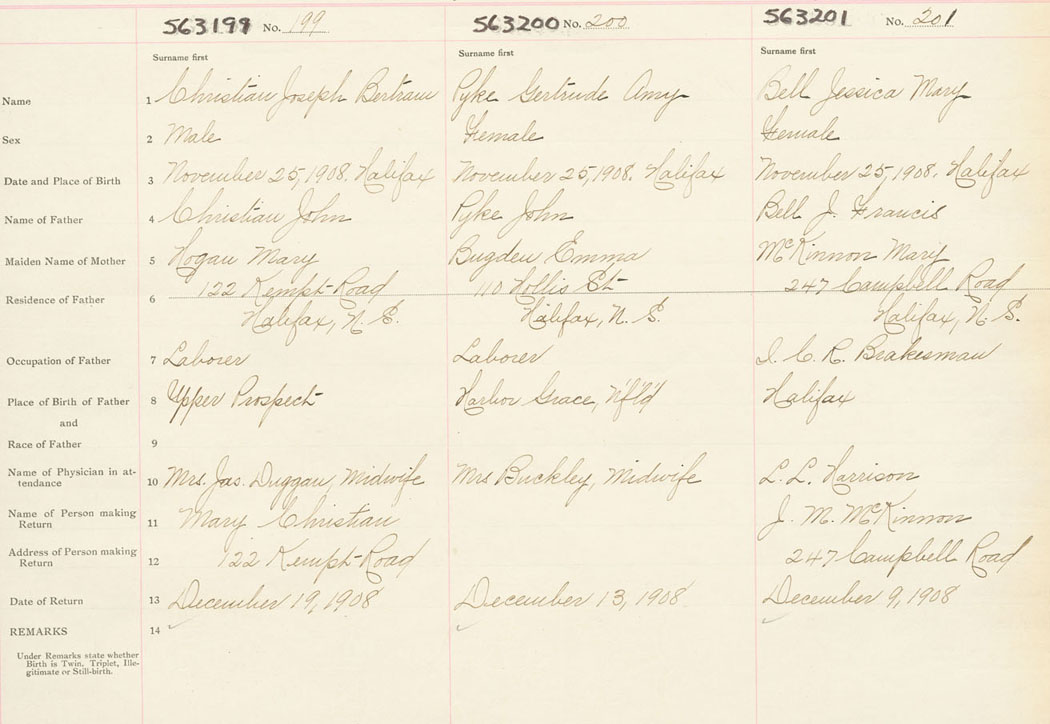 563199 No. 199 563200 No. 200 563201 No. 201
Surname first Surname first Surname first
Name 1 Christian Joseph Bertram Pyke Gertrude Amy Bell Jessica Mary
Sex 2 Male Female Female
Date and Place of Birth 3 November 25, 1908. Halifax November 25, 1908. Halifax November 25, 1908. Halifax
Name of Father 4 Christian John Pyke John Bell J. Francis
Maiden Name of Mother 5 Hogan Mary Bugden Emma McKinnon Mary
Residence of Father 6 122 Kempt Road 110 Hollis St 247 Campbell Road
Halifax, N. S. Halifax, N. S. Halifax, N. S.
Occupation of Father 7 Laborer Laborer I. C. R. Brakesman
Place of Birth of Father 8 Upper Prospect Harbor Grace, Nf'l'd Halifax
and
Race of Father 9
Name of Physician in at-
tendance 10 Mrs. Jas. Duggan, Midwife Mrs Buckley, Midwife L. L. Harrison
Name of Person making
Return 11 Mary Christian J. M. McKinnon
Address of Person making
Return 12 122 Kempt Road 247 Campbell Road
Date of Return 13 December 19, 1908 December 13, 1908 December 9, 1908
REMARKS 14
Under Remarks state whether
Birth is Twin, Triplet, Ille-
gitimate or Still-birth.